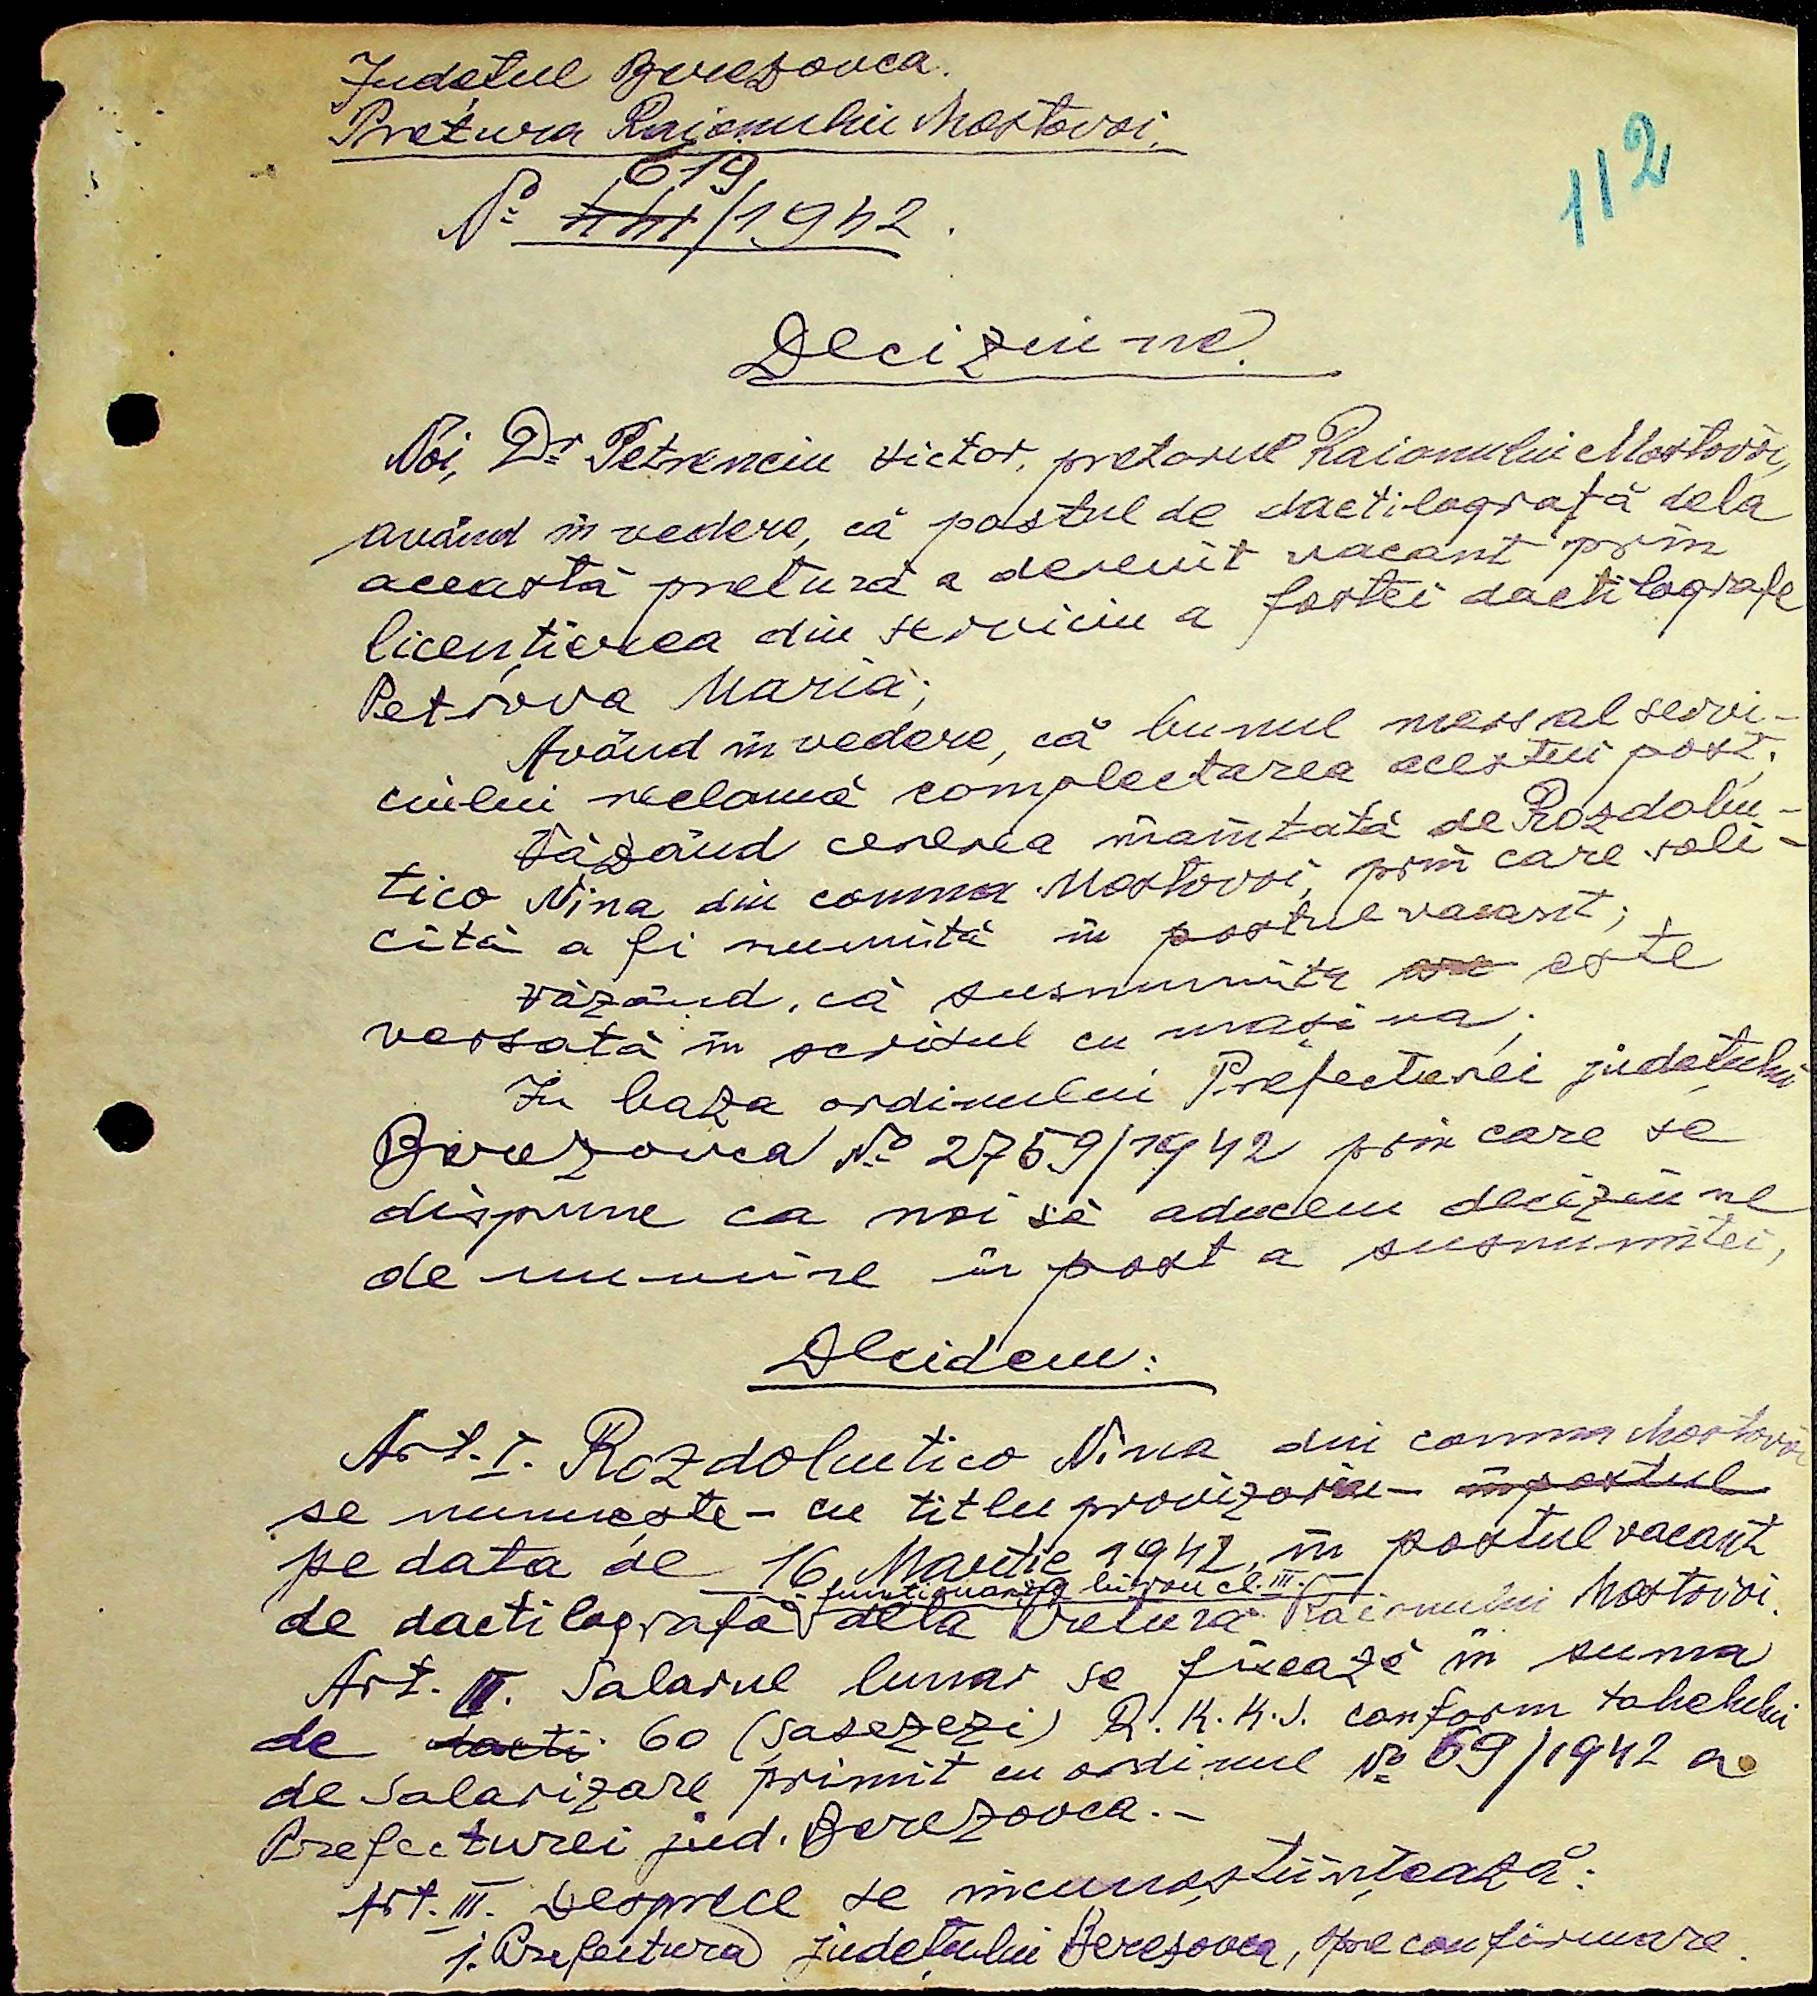 Județul Berezovca.
Pretura Raionului Mostovoi.
112
619
Nº 441/1942.
Deciziune.
Noi, Dr Petrenciu Victor, pretorul Raionului Mostovoi,
având în vedere, că postul de dactilografă dela
această pretură a devenit vacant prin
licențierea din serviciu a fostei dactilografe
Petrova Maria;
Având în vedere, că bunul mers al servi-
ciului reclamă complectarea acestui post;
Văzând cererea înaintată de Rozdolu-
tico Nina din comuna Mostovoi, prin care soli-
cită a fi numită în postul vacant;
văzând, că susnumita are este
versată în scrisul cu mașina;
In baza ordinului Prefecturei județului
Berezovca Nº 2759/1942 prin care se
dispune ca noi să aducem deciziune
de numire în post a susnumitei,
Decidem:
Art. I. Rozdolutico Nina din comuna Mostovoi
se numește - cu titlu provizoriu - în postul
pe data de 16 Martie 1942, în postul vacant
funcționară de birou cl. III.
de dactilografă dela Pretura Raionului Mostovoi.
Art. II. Salarul lunar se fixează în suma
de dacti 60 (șasezezi) R.K.K.S. conform tabelului
de salarizare primit cu ordinul Nº 69/1942 a
Prefecturei jud. Berezovca.-
Art. III. Despre ce se incunoștiințează:
1. Prefectura județului Berezovca, spre confirmare.